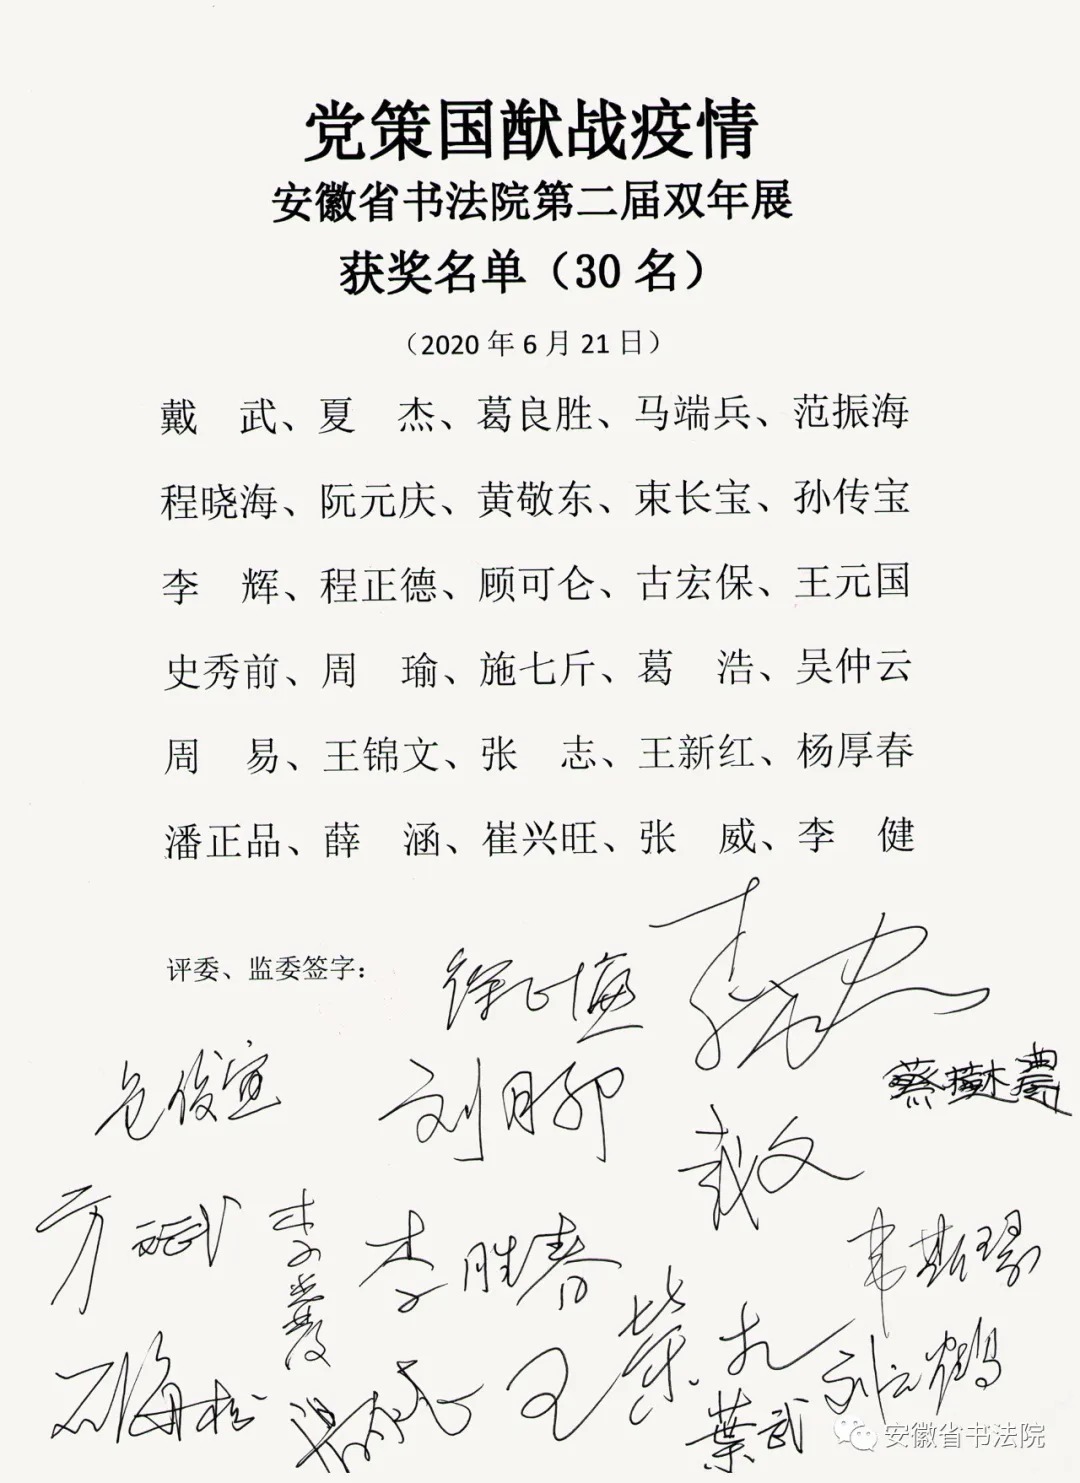 党策国猷战疫情
安徽省书法院第二届双年展
获奖名单（30 名）
（2020 年 6 月 21 日）
戴　武、夏　杰、葛良胜、马端兵、范振海
程晓海、阮元庆、黄敬东、束长宝、孙传宝
李　辉、程正德、顾可仑、古宏保、王元国
史秀前、周　瑜、施七斤、葛　浩、吴仲云
周　易、王锦文、张　志、王新红、杨厚春
潘正品、薛　涵、崔兴旺、张　威、李　健
评委、监委签字：
刘
蔡樹農
方斌
李胜春
韦斯琴
石海松
王
刘云鹤
葉武
安徽省书法院